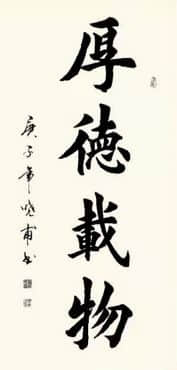 厚德載物
庚子年曉甫書